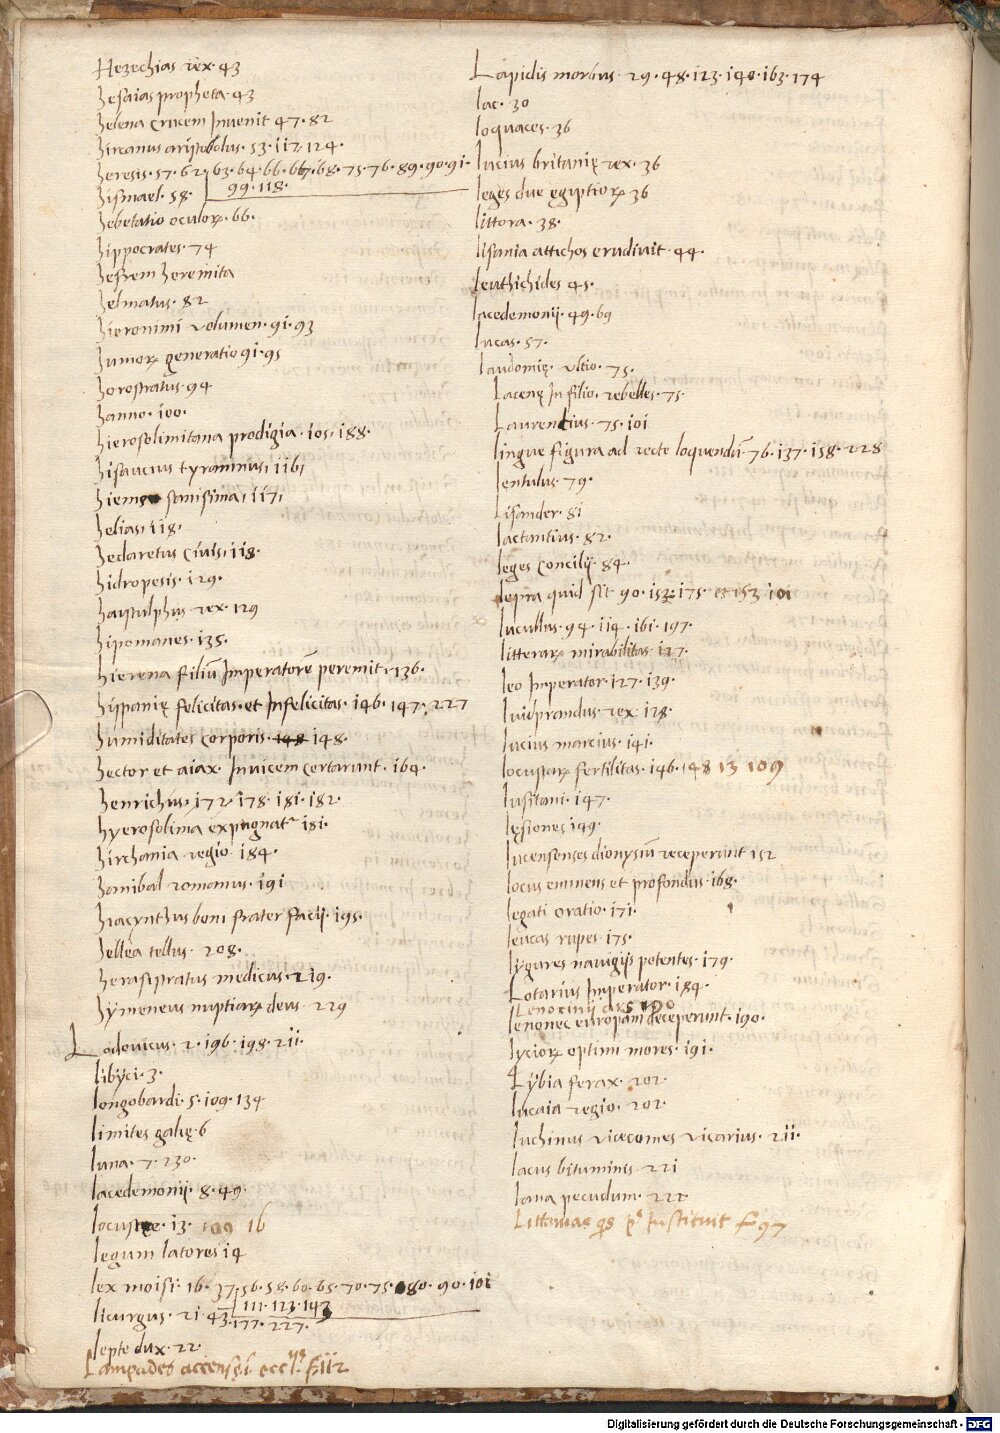 Hezechias rex. 43
hesaias propheta. 43
helena crucem Invenit 47. 82
hircanus aristobolus. 53. 117. 124.
heresis. 57. 62. 63. 64. 66. 67. 68. 75. 76. 89. 90. 91.
99. 118.
hismael. 58.
hebetatio oculoꝝ. 66.
hippocrates. 74
hefrem heremita
helmatus. 82
hieronimi volumen. 91. 93
humoꝝ generatio 91. 95
horostratus. 94
hanno. 100.
hierosolimitana prodigia. 105. 188.
hisaucius tyrannus. 116.
hiems senissima. 117.
helias. 118.
hedaretus civis. 118.
hidropesis. 129.
haystulphus rex. 129
hipomanes. 135.
hierena filiũ Imperatorẽ peremit. 136.
hispanię felicitas. et Infelicitas. 146. 147. 227
humiditates corporis. 148 148.
hector et aiax Invicem certarunt. 164.
henrichus. 172. 178. 181. 182
hyerosolima expugnatr 181.
hirchania regio 184.
hanibal romanus. 191
hiacynthus boni frater facij. 195.
hellea tellus. 208.
herasistratus medicus. 219.
hymeneus nuptiaꝝ deus. 229
Lodovicus. 2. 196. 198. 211.
libyci. 3.
longobardi. 5. 109. 134
limites galię 6
luna. 7. 230.
lacedemonij. 8. 49.
locuste. 13. 109 16
legum latores 14
lex moisi. 16. 37. 56. 58. 60. 65. 70. 75. 80. 90. 101
111. 123. 143
licurgus. 21. 43. 177. 227.
lepte dux. 22.
Lampades accensę i eccl. f. 112
Lapidis morbus. 29. 48. 123. 140. 163. 174
lac. 30
loquaces. 36
lucius britanię rex. 36
leges due egiptioꝝ 36
littora. 38.
lisania attichos erudivit 44.
leuthichides 45.
lacedemonij. 49. 69
lucas. 57.
laudomię. ultio. 75.
lacenę In filio. rebelles. 75
Laurentius. 75. 101
lingue figura ad recte loquendũ 76. 137. 158. 228
lentulus. 79.
lisander. 81
lactantius. 82.
leges concilij. 84.
lepra quid sit 90. 152. 175. et 153 101
lucullus. 94. 114. 161. 197.
litteraꝝ mirabilitas. 127.
leo Imperator. 127. 139.
luidprandus rex 128.
lucius marcius. 141.
locustaꝝ fertilitas. 146. 148 13 109
lusitani. 147.
legiones 149.
lucensenses dionysiũ receperunt 152
locus eminens et profondus. 168.
legati oratio. 171.
leucas rupes. 175.
lygures navigijs potentes. 179.
Lotarius Imperator. 184.
Lenocinij ars 190
lenones europam deceperunt. 190.
lycioꝝ optimi mores. 191.
Lybia ferax. 202.
lucaia regio. 202.
luchinus vicecomes vicarius. 211.
lacus bituminis 221
lana pecudum. 222
Litteras qs p. Instituit f 97
Digitalisierung gefördert durch die Deutsche Forschungsgemeinschaft - DFG